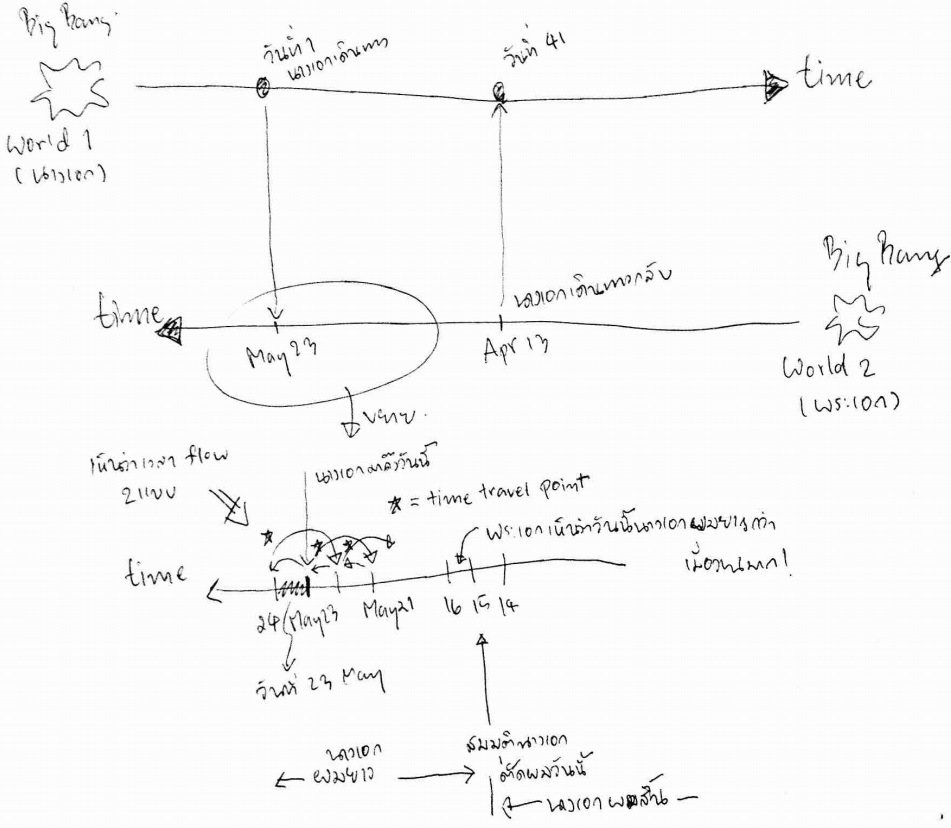 Big Bang
วันที่ 1
นางเอกเดินทาง
วันที่ 41
time
World 1
(นางเอก)
Big Bang
นางเอกเดินทางกลับ
time
May 23
Apr 13
World 2
(พระเอก)
ขยาย
เห็นว่าเวลา flow
2 แบบ
นางเอกมาถึงวันนี้
★ = time travel point
พระเอกเห็นว่าวันนี้นางเอกผมยาวกว่า
เมื่อวานมาก!
time
24 May 23 May 21 16 15 14
วันที่ 23 May
นางเอก
ผมยาว
สมมตินางเอก
ตัดผมวันนี้
นางเอกผมสั้น